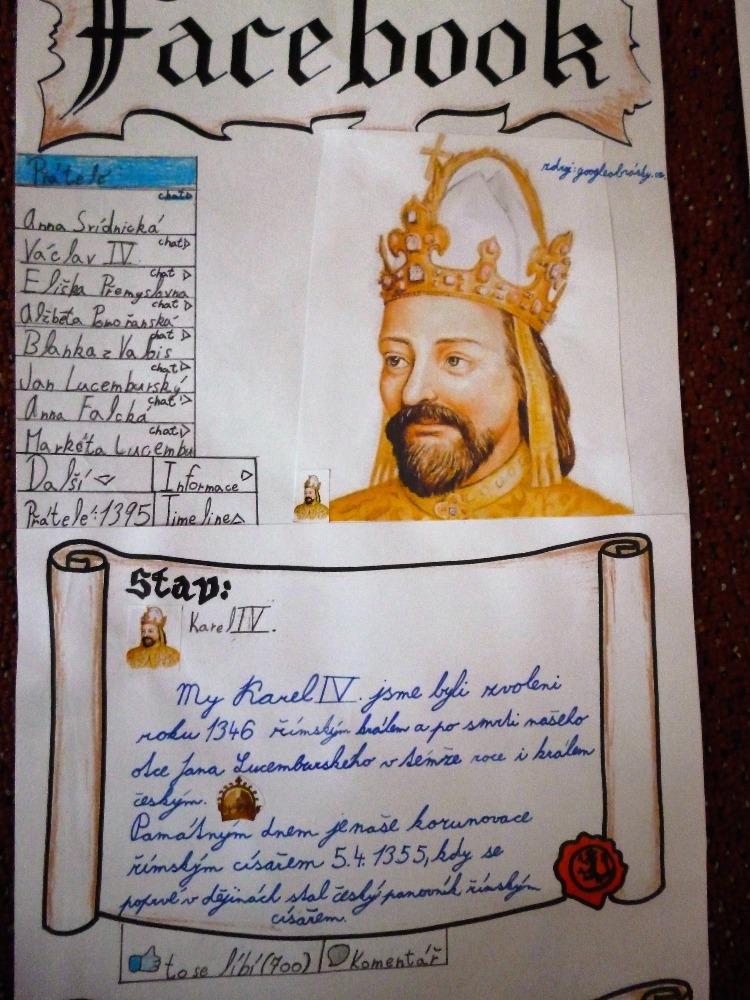 Facebook
zdroj: googleobrázky.cz
Přátelé
chat
Anna Svídnická
chat
Václav IV.
chat
Eliška Přemyslovna
chat
Alžběta Pomořanská
chat
Blanka z Valois
chat
Jan Lucemburský
chat
Anna Falcká
chat
Markéta Lucembu
Další
Informace
Přátelé: 1395
Timeline
Stav:
Karel IV.
My Karel IV. jsme byli zvoleni
roku 1346 římským králem a po smrti našeho
otce Jana Lucemburského v témže roce i králem
českým.
Památným dnem je naše korunovace
římským císařem 5.4.1355, kdy se
poprvé v dějinách stal český panovník římským
císařem.
to se líbí (700)
Komentář